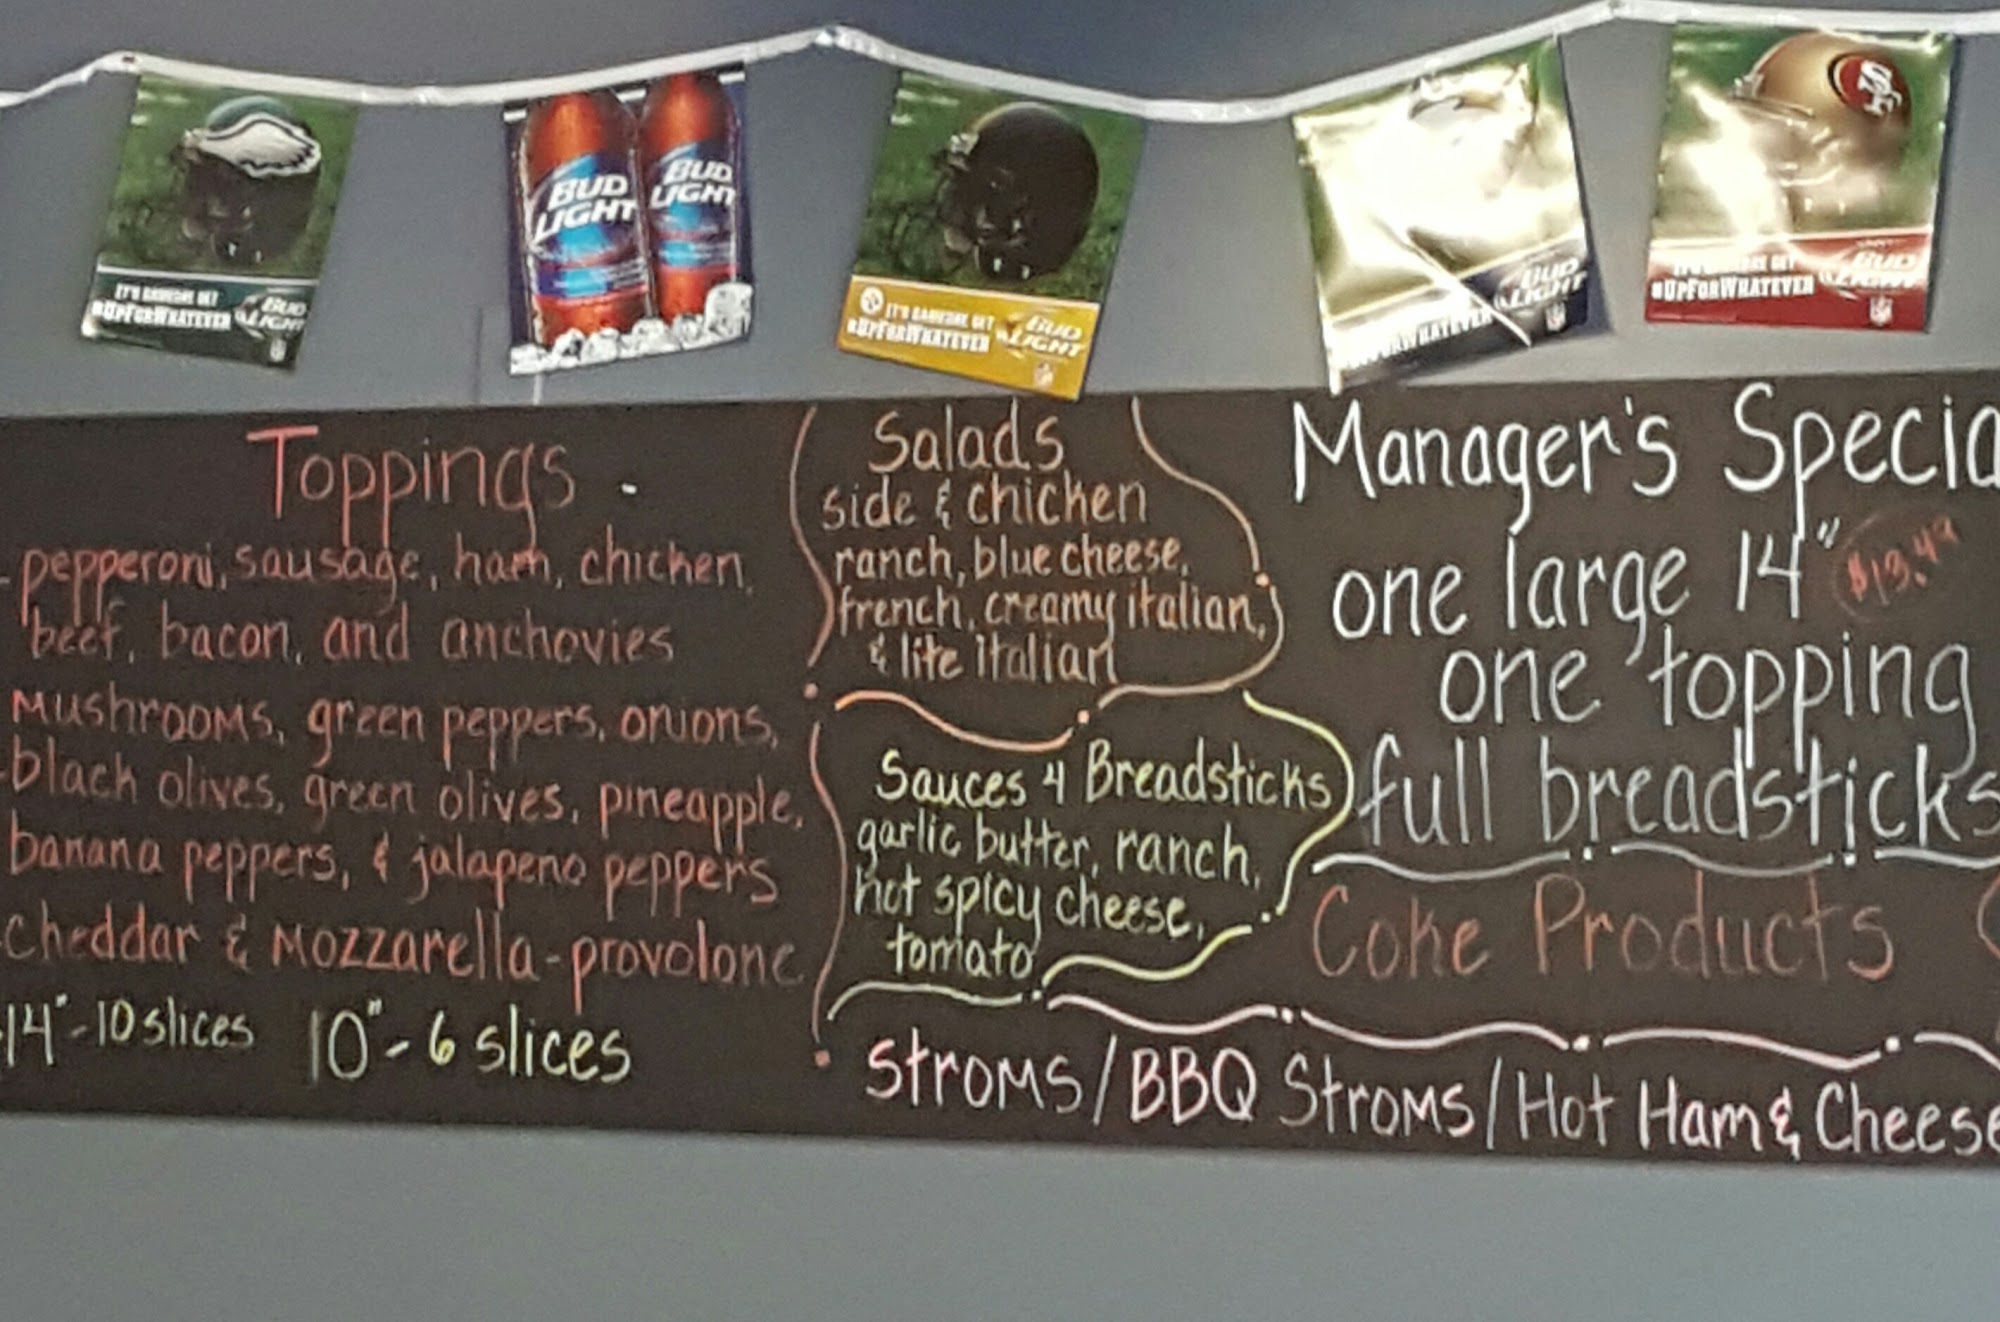 IT'S GAMEDAY. GET
#UPFORWHATEVER
BUD
LIGHT
BUD
LIGHT
BUD
LIGHT
#UPFORWHATEVER
BUD
LIGHT
BUD
LIGHT
SF
#UPFORWHATEVER
BUD
LIGHT
Toppings
-pepperoni, sausage, ham, chicken,
beef, bacon, and anchovies
mushrooms, green peppers, onions,
-black olives, green olives, pineapple,
banana peppers, & jalapeno peppers
-Cheddar & Mozzarella-provolone
-14"-10 slices 10"-6 slices
Salads
side & chicken
ranch, blue cheese,
french, creamy italian,
& lite italian
Sauces 4 Breadsticks
garlic butter, ranch,
hot spicy cheese,
tomato
Manager's Specia
one large 14" $13.49
one topping
full breadsticks
Coke Products
Stroms/BBQ Stroms/Hot Ham & Cheese